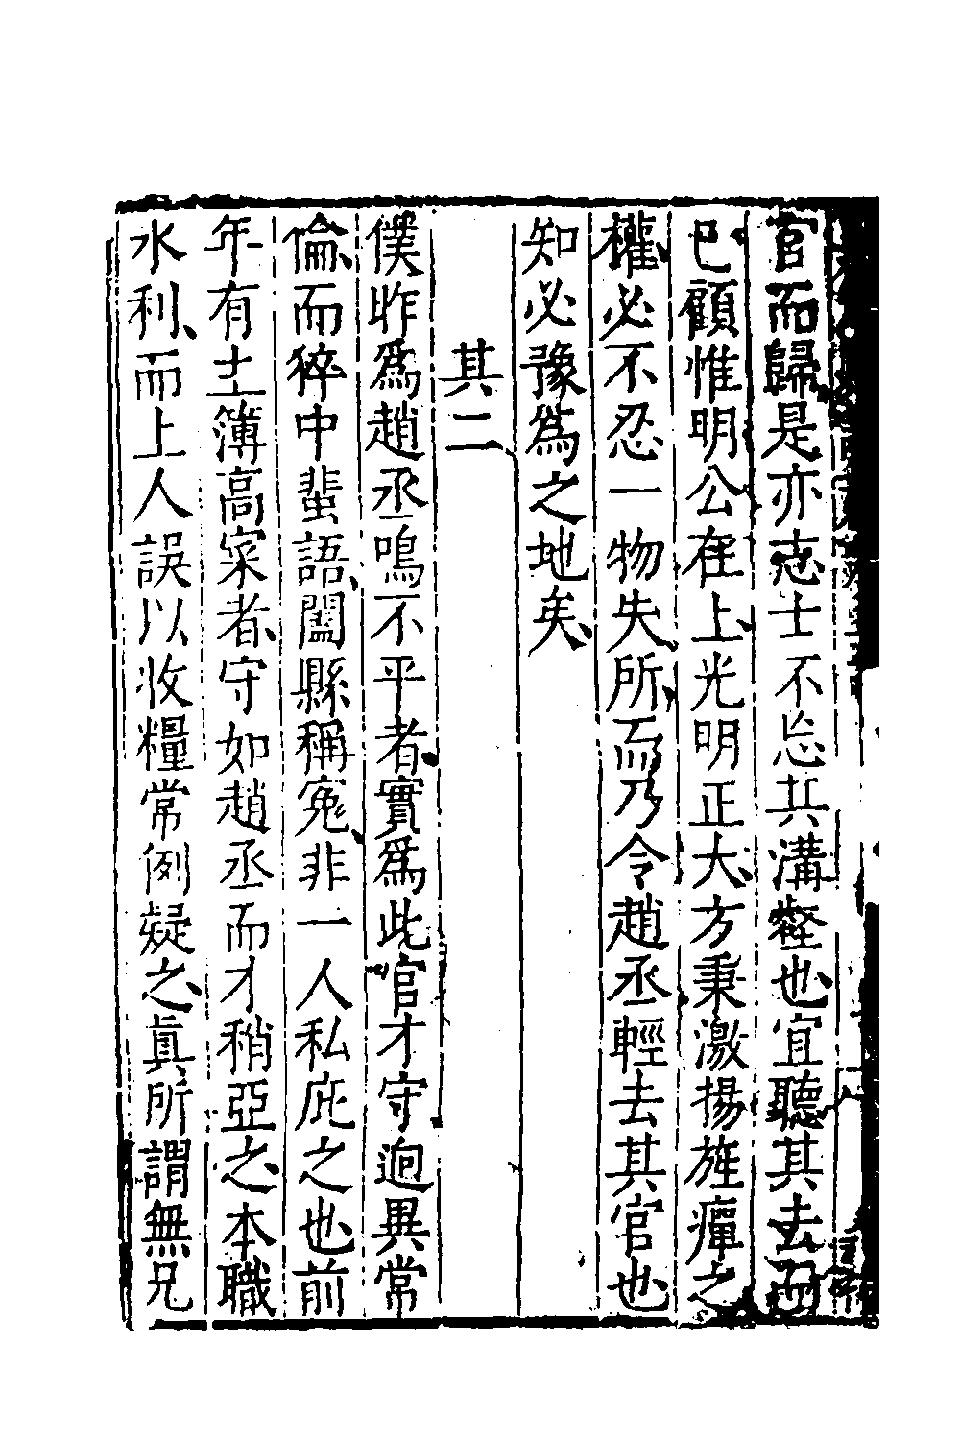 官而歸是亦志士不忘其溝壑也宜聽其去而
已顧惟明公在上光明正大方秉激揚旌癉之
權必不忍一物失所而乃令趙丞輕去其官也
知必豫爲之地矣
其二
僕昨爲趙丞鳴不平者實爲此官才守迥異常
倫而猝中蜚語闔縣稱寃非一人私庇之也前
年有土簿高寀者守如趙丞而才稍亞之本職
水利而上人誤以收糧常例疑之眞所謂無兄